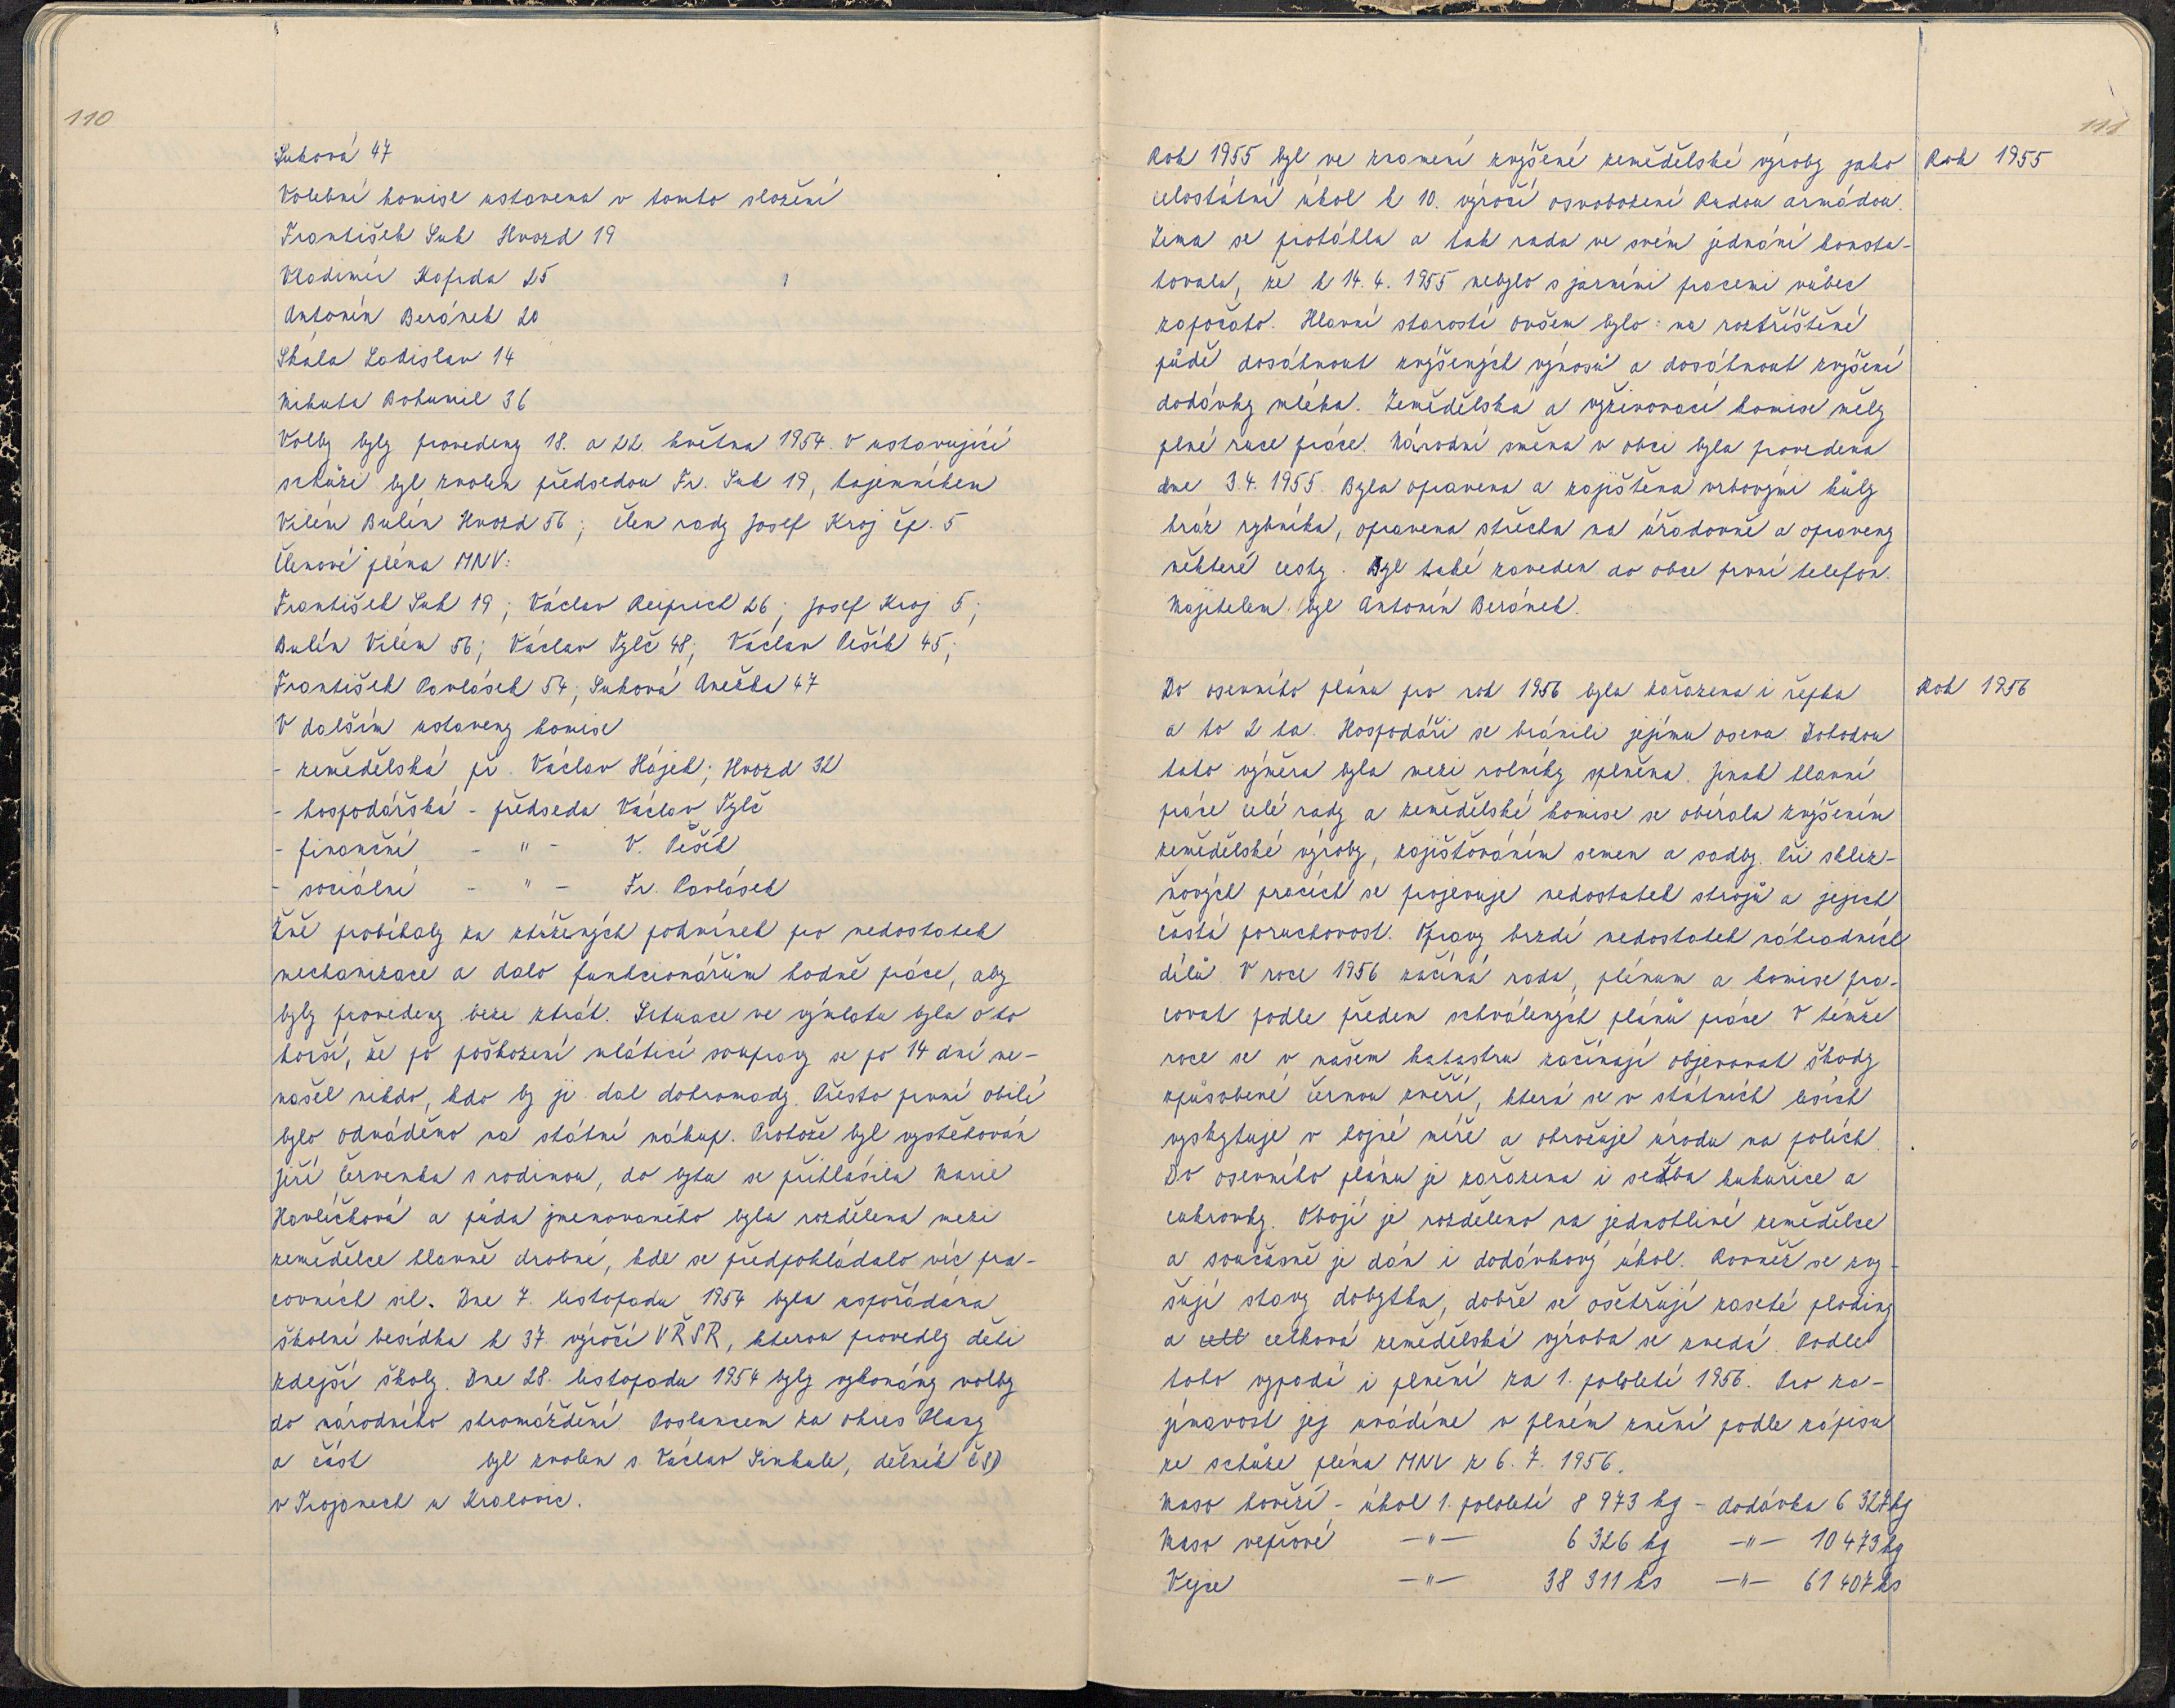 110
Suková 47
Volební komise ustavena v tomto složení
František Suk Hvozd 19
Vladimír Kafrda 25
Antonín Beránek 20
Skála Ladislav 14
Nikuta Bohumil 36
Volby byly provedeny 18. a 22. května 1954. V ustavující
schůzi byl zvolen předsedou Fr. Suk 19, tajemníkem
Vilém Bulín Hvozd 56; člen rady Josef Kroj čp. 5
Členové pléna MNV:
František Suk 19; Václav Reiprich 26; Josef Kroj 5;
Bulín Vilém 56; Václav Tylč 48; Václav Pešík 45;
František Pavlásek 54; Suková Anežka 47
V dalším ustaveny komise
- zemědělská př. Václav Hájek; Hvozd 32
- hospodářská - předseda Václav Tylč
- finanční - " - V. Pešík
- sociální - " - Fr. Pavlásek
Žně probíhaly za ztížených podmínek pro nedostatek
mechanizace a dalo funkcionářům hodně práce, aby
byly provedeny beze ztrát. Situace ve výmlatu byla o to
horší, že po poškození mlátící soupravy se po 14 dní ne-
našel nikdo, kdo by ji dal dohromady. Přesto první obilí
bylo odváděno na státní nákup. Protože byl vystěhován
Jiří Červenka s rodinou, do bytu se přihlásila Marie
Havlíčková a půda jmenovaného byla rozdělena mezi
zemědělce hlavně drobné, kde se předpokládalo víc pra-
covních sil. Dne 7. listopadu 1954 byla uspořádána
školní besídka k 37. výročí VŘSR, kterou provedly děti
zdejší školy. Dne 28. listopadu 1954 byly vykonány volby
do národního shromáždění. Poslancem za okres Plasy
a část byl zvolen s. Václav Sinkule, dělník ČSD
v Trojanech u Kralovic.
111
Rok 1955 byl ve znamení zvýšené zemědělské výroby jako
Rok 1955
celostátní úkol k 10. výročí osvobození Rudou armádou.
Zima se protáhla a tak rada ve svém jednání konsta-
tovala, že k 14. 4. 1955 nebylo s jarními pracemi vůbec
započato. Hlavní starostí ovšem bylo: na roztříštěné
půdě dosáhnout zvýšených výnosů a dosáhnout zvýšení
dodávky mléka. Zemědělská a vyživovací komise měly
plné ruce práce. Národní směna v obci byla provedena
dne 3.4. 1955. Byla opravena a zajištěna vrbovými kůly
hráz rybníka, opravena střecha na úřadovně a opraveny
některé cesty. Byl také zaveden do obce první telefon.
Majitelem byl Antonín Beránek.
Do osevního plánu pro rok 1956 byla zařazena i řepka
Rok 1956
a to 2 ha. Hospodáři se bránili jejímu osevu. Dohodou
tato výměra byla mezi rolníky splněna. Jinak hlavní
práce celé rady a zemědělské komise se obírala zvýšením
zemědělské výroby, zajišťováním semen a sadby. Při skliz-
ňových pracích se projevuje nedostatek strojů a jejich
častá poruchovost. Opravy brzdí nedostatek náhradních
dílů. V roce 1956 začíná rada, plénum a komise pra-
covat podle předem schválených plánů práce. V témže
roce se v našem katastru začínají objevovat škody
způsobené černou zvěří, která se v státních lesích
vyskytuje v hojné míře a ohrožuje úrodu na polích.
Do osevního plánu je zařazena i setba kukuřice a
cukrovky. Obojí je rozděleno na jednotlivé zemědělce
a současně je dán i dodávkový úkol. Rovněž se zvy-
šují stavy dobytka, dobře se ošetřují zaseté plodiny
a celk celková zemědělská výroba se zvedá. Podle
toho vypadá i plnění za 1. pololetí 1956. Pro za-
jímavost jej uvádíme v plném znění podle zápisu
ze schůze pléna MNV z 6. 7. 1956.
Maso hovězí - úkol 1. pololetí 8 973 kg - dodávka 6 327 kg
Maso vepřové -"- 6 326 kg -"- 10 473 kg
Vejce -"- 38 311 ks -"- 61 407 ks